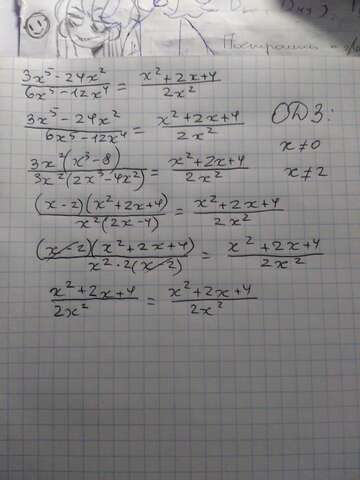 (3x⁵-24x²)/(6x⁵-12x⁴) = (x²+2x+4)/(2x²)
(3x⁵-24x²)/(6x⁵-12x⁴) = (x²+2x+4)/(2x²)
ОДЗ:
x≠0
x≠2
(3x²(x³-8))/(3x²(2x³-4x²)) = (x²+2x+4)/(2x²)
((x-2)(x²+2x+4))/(x²(2x-4)) = (x²+2x+4)/(2x²)
((x-2)(x²+2x+4))/(x²·2(x-2)) = (x²+2x+4)/(2x²)
(x²+2x+4)/(2x²) = (x²+2x+4)/(2x²)